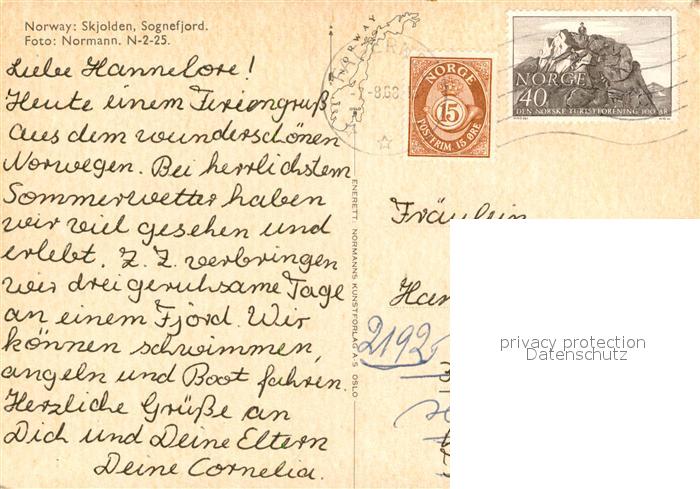 Norway: Skjolden, Sognefjord.
Foto: Normann. N-2-25.
Liebe Hannelore!
Heute einem Feriengruß
aus dem wunderschönen
Norwegen. Bei herrlichstem
Sommerwetter haben
wir viel gesehen und
erlebt. Z. Z. verbringen
wir drei geruhsame Tage
an einem Fjord. Wir
können schwimmen,
angeln und Boot fahren.
Herzliche Grüße an
Dich und Deine Eltern
Deine Cornelia.
ENERETT: NORMANNS KUNSTFORLAG A-S OSLO
NORWAY
NORGE
15
POSTFRIM. 15 ØRE
NORGE
40
DEN NORSKE TURISTFORENING 100 ÅR
Fräulein
Han
2192
privacy protection
Datenschutz